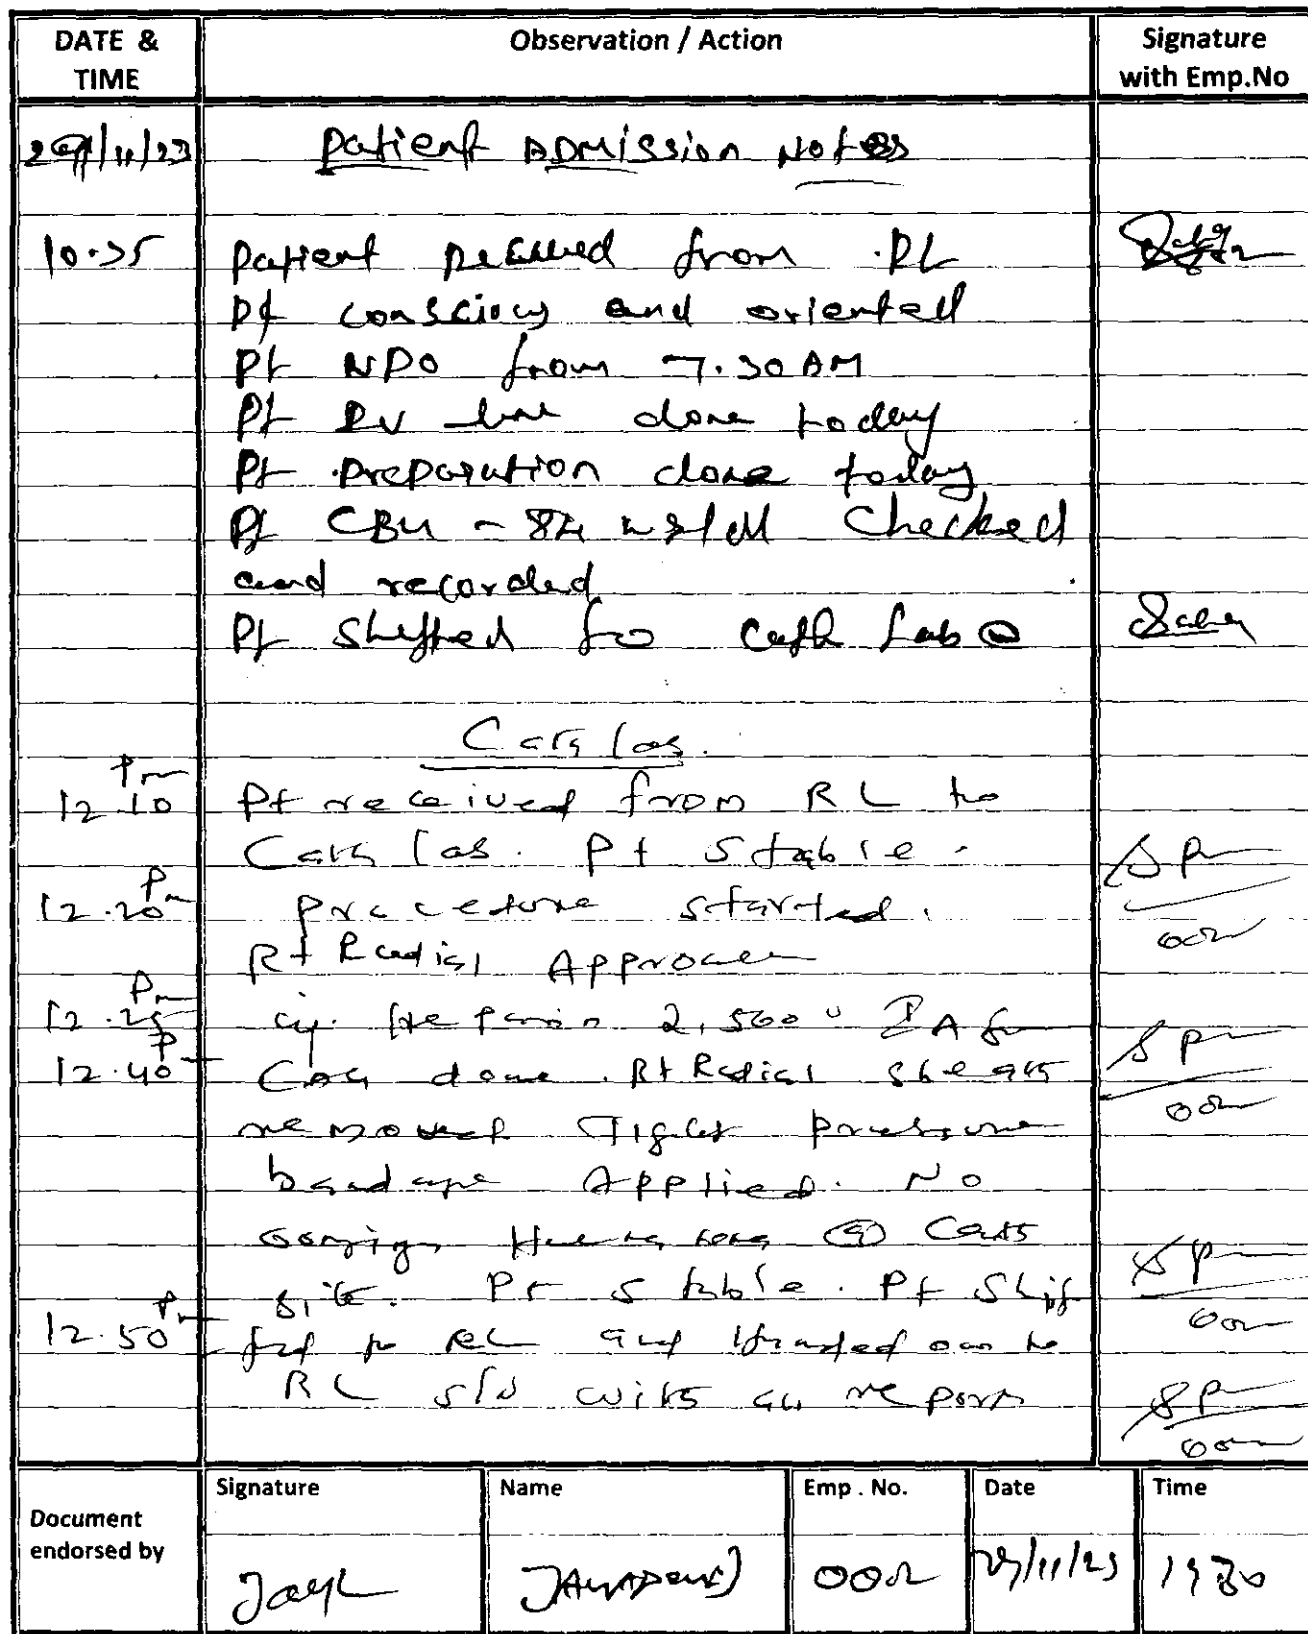 DATE & TIME Observation / Action Signature with Emp.No
29/11/23 Patient ADMission Notes
10.35 Patient received from RL
Pt conscious and oriented
Pt NPO from 7.30 AM
Pt IV line done today
Pt Preparation done today
Pt CBG - 84 mg/dl Checked
and recorded
Pt Shifted to Cath Lab
Cath lab.
12.10 Pm Pt received from RL to
Cath lab. Pt Stable.
12.20 Pm procedure started.
Rt Radial Approach
12.25 Pm inj. Heparin 2,500 U IA
12.40 P CAG done. Rt Radial Sheath
removed Tight pressure
bandage Applied. No
Hematoma Cath
site. Pt stable. Pt Shif
12.50 Pm ted to RL and handed over to
RL S/N with all reports
Document endorsed by Signature Name Emp . No. Date Time
002 29/11/23